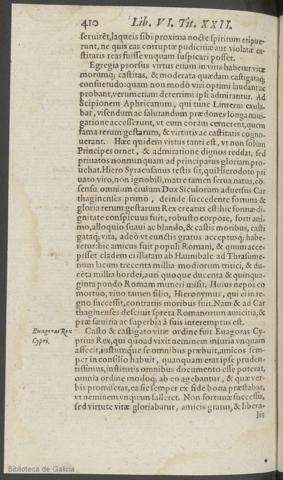 410 Lib. VI. Tit. XXII.
seruirẽt, laqueis sibi proxima nocte spiritum eripue-
runt, ne quis eas corruptæ pudicitiæ aut violatæ ca-
stitatis reas fuisse vnquam suspicari posset.
Egregia prorsus virtus etiam in viris habetur vitæ
morumq́; castitas, & moderata quædam castigataq́;
consuetudo: quam non modò viri optimi laudant ac
probant, verùm etiam deterrimi ipsi admirantur. Ad
Scipionem Aphricanum, qui tunc Linterni exula-
bat, visendum ac salutandum prædones longa naui-
gatione accesserunt, vt eum coràm cernerent, quem
fama rerum gestarum, & virtutis ac castitatis cogno-
uerant. Hæc quidem virtus tanti est, vt non solùm
Principes ornet, & admiratione dignos reddat, sed
priuatos nonnunquam ad principatus gloriam pro-
uehat. Hiero Syracusanus testis sit, qui Herodoto pri
uato viro, non ignobili, matre tamen serua natus, cõ-
sensu omnium ciuium Dux Siculorum aduersus Car
thaginensis primò, deinde succedente fortuna &
gloria rerum gestarum Rex creatus est: hic formæ di-
gnitate conspicuus fuit, robusto corpore, forti ani-
mo, alloquio suaui ac blando, & castis moribus, casti
gataq́; vita, adeò vt cunctis gratus acceptusq́; habe-
retur: hic amicus fuit populi Romani, & quum acce-
pisset cladem ei illatam ab Hannibale ad Thrasume-
num lacum trecenta millia modiorum tritici, & du-
cẽta millia hordei, auri quoque ducenta & quinqua-
ginta pondo Romam muneri misit. Huius nepos eo
mortuo, vino tamen filio, Hieronymus, qui ei in re-
gno successit, contrariis moribus fuit. Nam & ad Car
thaginenses desciuit spreta Romanorum amicitia, &
præ sæuitia ac superbia à suis interemptus est.
Euagoras Rex Casto & castigato vitæ ordine fuit Euagoras Cy-
Cypri. prius Rex, qui quoad vixit neminem iniuria vnquam
affecit, iustumque se omnibus præbuit, amicos sem-
per in consilio habuit, quanquam erat ipse pruden-
tissimus, institutis omnibus documento esse poterat,
omnia ordine modoq́; ab eo agebantur, & quæ ver-
bis promiserat, ea sic semper ex fide bona præstabat,
vt neminem vnquam falleret. Non fortunæ successu,
sed virtute vitæ gloriabatur, amicis gratus, & libera-
lis
Biblioteca de Galicia